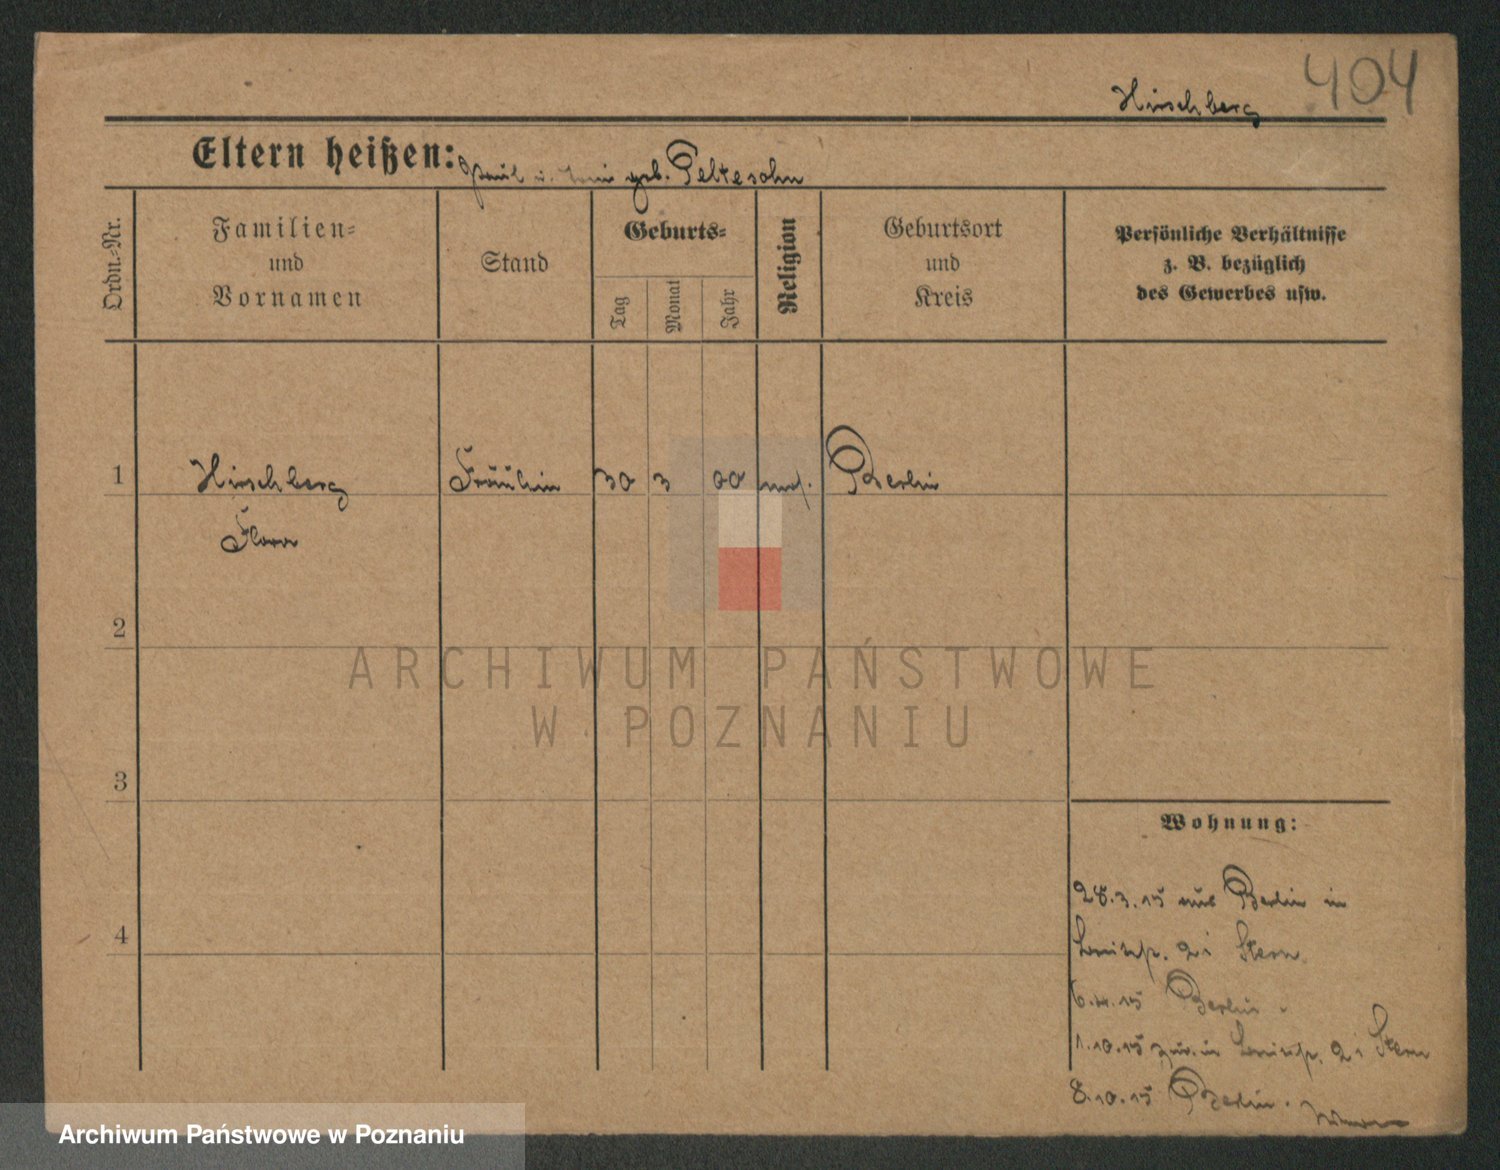 404
Hirschberg
Eltern heißen: Paul u. geb. Peltesohn
Ordn.-Nr.
Familien-
und
Vornamen
Stand
Geburts-
Tag
Monat
Jahr
Religion
Geburtsort
und
Kreis
Persönliche Verhältnisse
z. B. bezüglich
des Gewerbes usw.
1 Hirschberg Fräulein 30 3 00 mos. Berlin
Flora
2
ARCHIWUM PAŃSTWOWE
W POZNANIU
3
Wohnung:
28.3.15 aus Berlin in
Louisenstr. 2 i Stern
6.4.15 Berlin.
1.10.15 zur. in Louisenstr. 2 i Stern
8.10.15 Berlin.
4
Archiwum Państwowe w Poznaniu